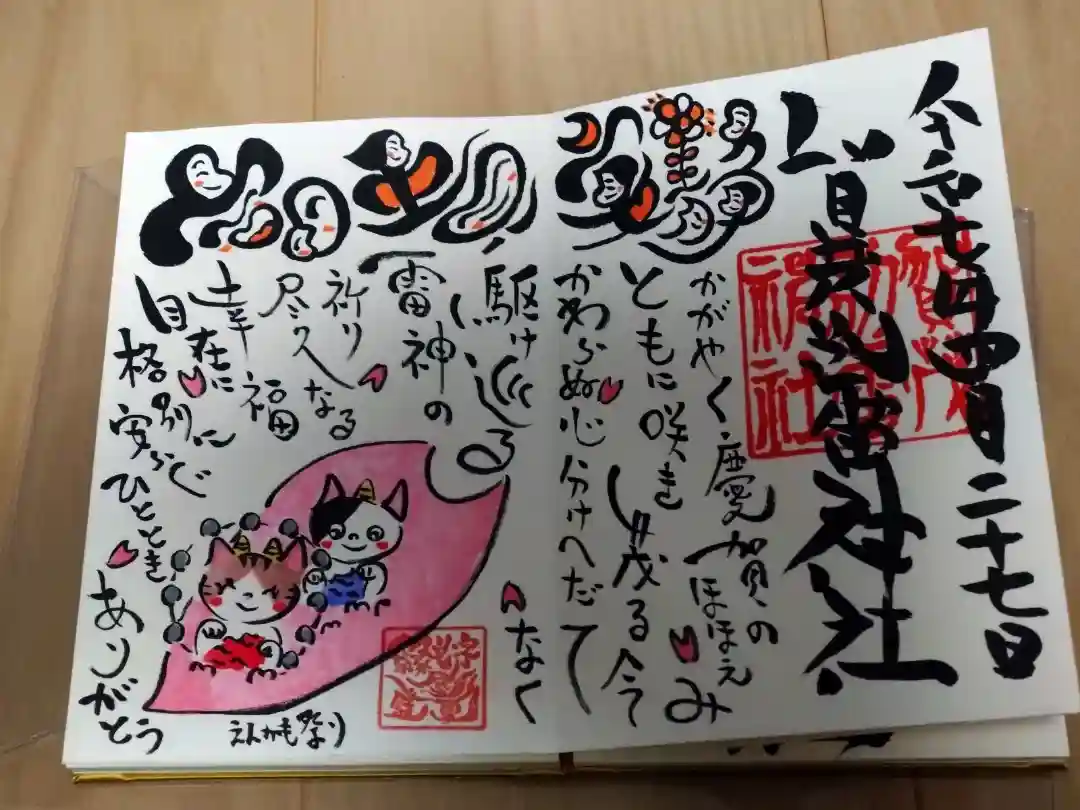 令和七年四月二十七日
賀茂別雷神社
かがやく慶賀のほほえみ
ともに咲き茂る今
かわらぬ心分けへだて
なく
駆け巡る
雷神の
祈り
尽久なる
幸福
自在に
格別に
安らぐ
ひととき
ありがとう
えんかも祭り